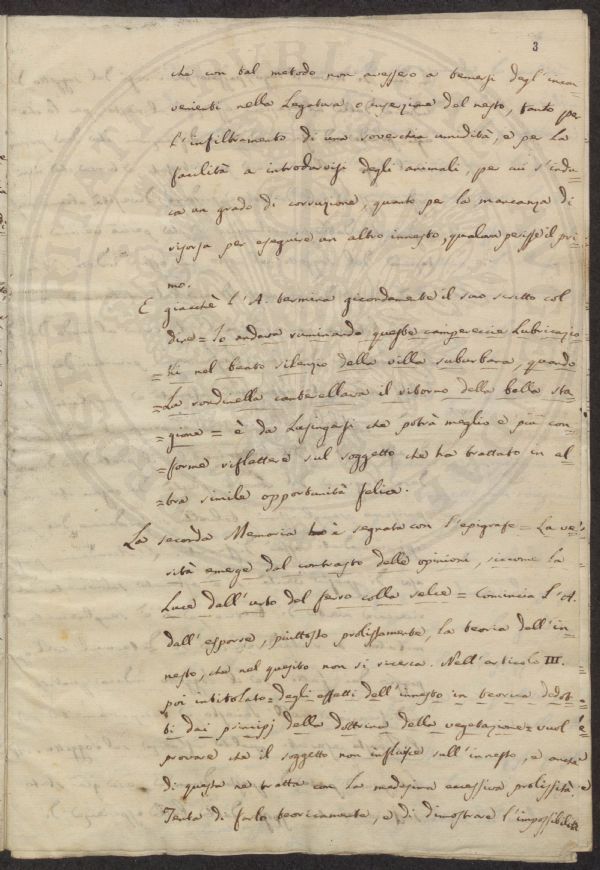 3
che con tal metodo non avessero a temersi degl'incon=
venienti nella Legatura o inserzione del nesto, tanto per
l'infiltramento di una soverchia umidità, e per la
facilità a introdursi degli animali, per cui s'indu=
ca un grado di corruzione, quanto per la mancanza di
risorsa per eseguire un altro innesto, qualora perisse il pri=
mo.
E giacchè l'A. termina giocondamente il suo scritto col
dire = Io andava ruminando queste campereccie Lubricazio=
=ni nel beato silenzio della villa suburbana, quando
=La rondinella canterellava il ritorno della bella sta=
=gione = è da Lusingarsi che potrà meglio e più con=
=forme riflettere sul soggetto che ha trattato in al=
=tra simile opportunità felice.
La seconda Memoria è segnata con l'epigrafe = La ve=
rità emerge dal contrasto delle opinioni, siccome la
Luce dall'urto del ferro colla selce = Comincia l'A.
dall'esporre, piuttosto prolissamente, la teoria dell'in=
nesto, che nel quesito non si ricerca. Nell'articolo III.
poi intitolato = degli effetti dell'innesto in teorica dedot=
ti dai principj della dottrina della vegetazione = vuol
provare che il soggetto non influisce sull'innesto, e anche
di questo ne tratta con La medesima eccessiva prolissità e
Tenta di farlo teoricamente, e di dimostrare l'impossibilità